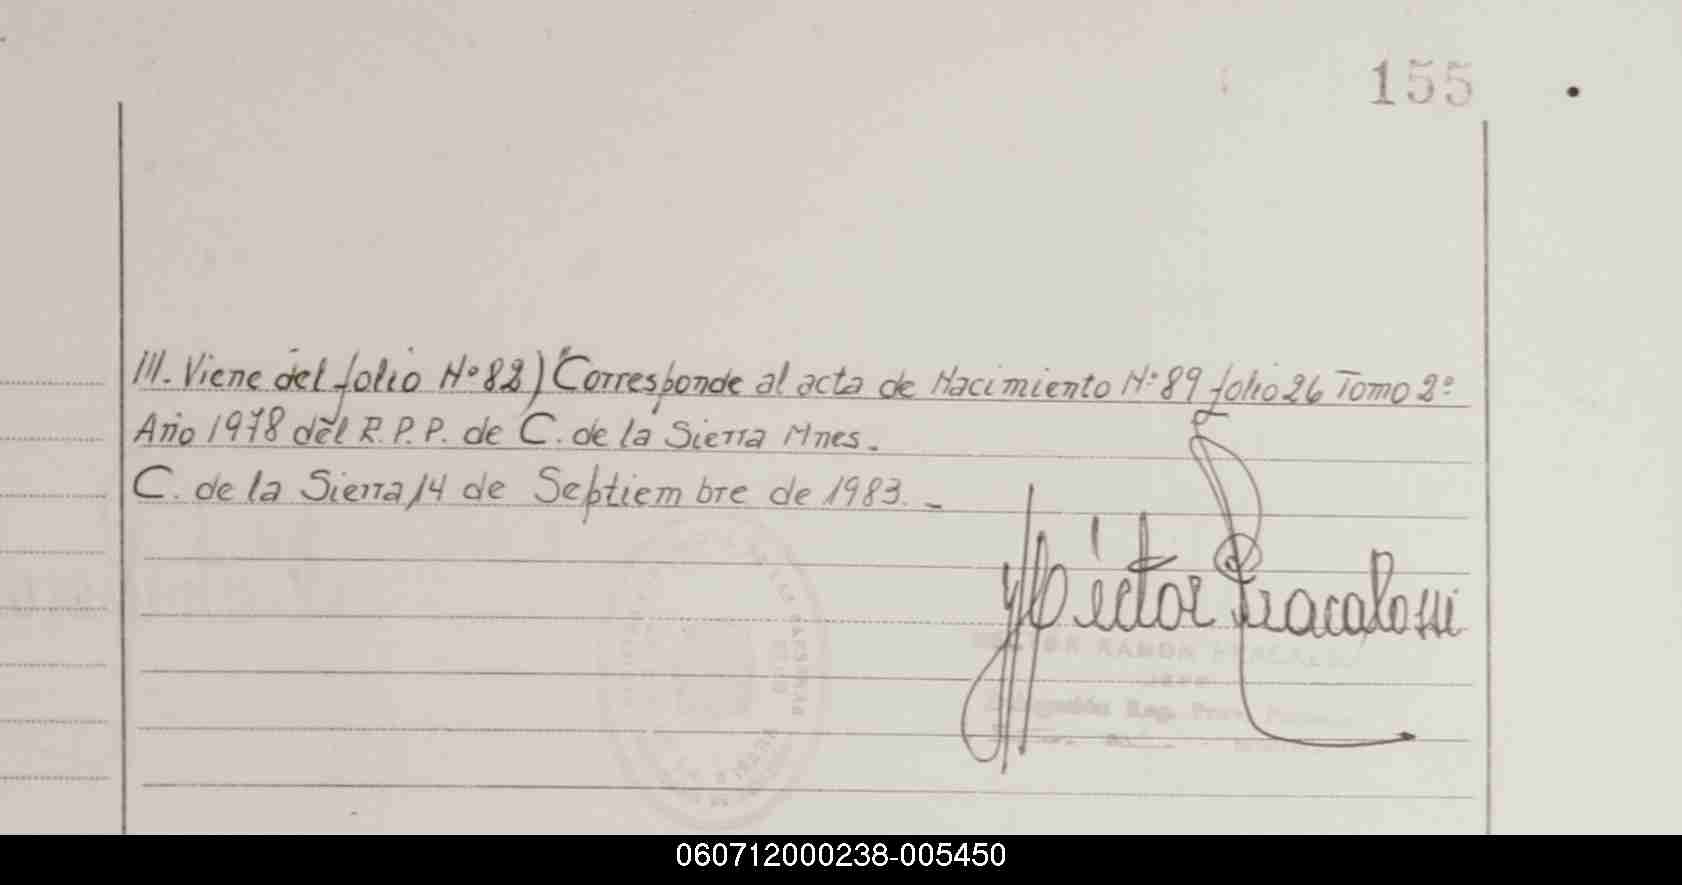 155
///. Viene del folio Nº 82) Corresponde al acta de Nacimiento Nº 89 folio 26 Tomo 2º
Año 1978 del R.P.P. de C. de la Sierra Mnes.
C. de la Sierra 14 de Septiembre de 1983. -
Héctor Bracalossi
HECTOR RAMON
JEFE
Delegación Reg. Prov.
060712000238-005450